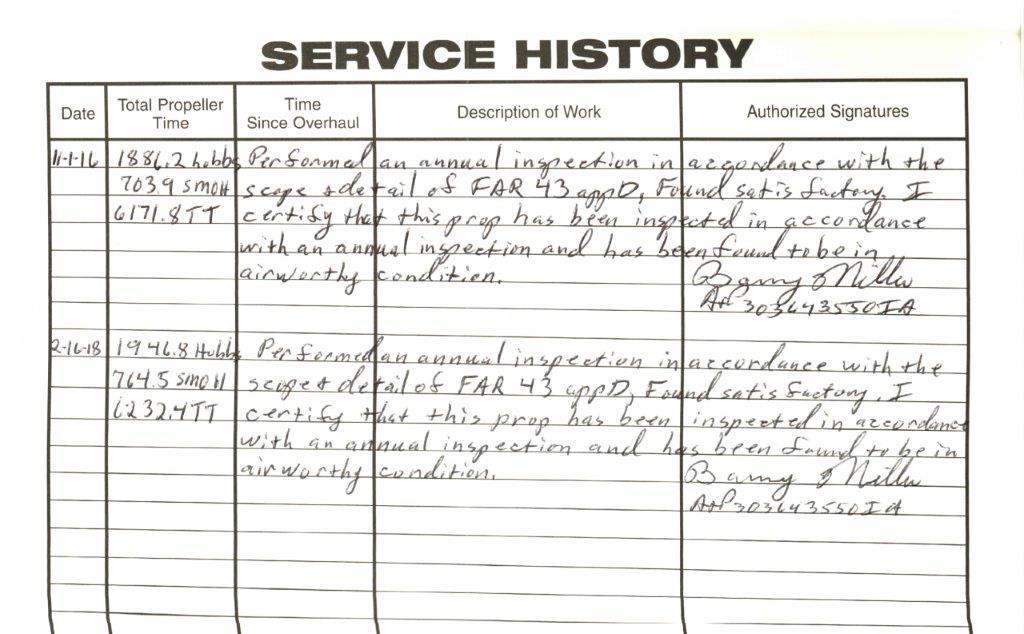 SERVICE HISTORY
Date
Total Propeller
Time
Time
Since Overhaul
Description of Work
Authorized Signatures
11-1-16 1886.2 hobbs Performed an annual inspection in accordance with the
703.9 SMOH scope & detail of FAR 43 appD, Found satisfactory. I
6171.8TT certify that this prop has been inspected in accordance
with an annual inspection and has been found to be in
airworthy condition.
Barry Miller
A+P 303643550IA
2-16-18 1946.8 Hobbs Performed an annual inspection in accordance with the
764.5 SMOH scope & detail of FAR 43 appD, Found satisfactory. I
6232.4TT certify that this prop has been inspected in accordance
with an annual inspection and has been found to be in
airworthy condition.
Barry Miller
A+P 303643550IA